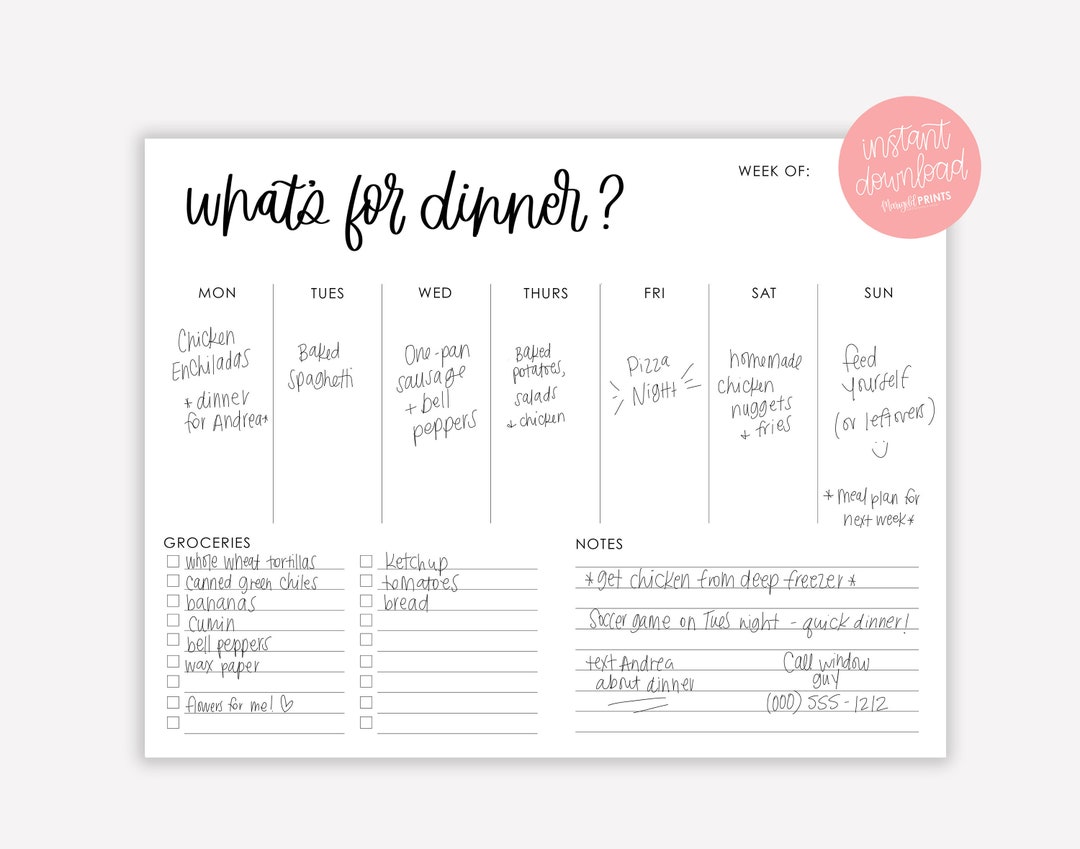 what's for dinner?
WEEK OF:
instant
download
PRINTS
MON
Chicken
Enchiladas
*dinner
for Andrea*
TUES
Baked
spaghetti
WED
One-pan
sausage
+ bell
peppers
THURS
Baked
potatoes,
salads
+ chicken
FRI
Pizza
Night
SAT
homemade
chicken
nuggets
+ fries
SUN
feed
yourself
(or leftovers)
*meal plan for
next week*
GROCERIES
whole wheat tortillas
canned green chiles
bananas
cumin
bell peppers
wax paper
flowers for me! ♡
ketchup
tomatoes
bread
NOTES
*get chicken from deep freezer*
Soccer game on Tues night - quick dinner!
text Andrea
about dinner
Call window
guy
(000) 555-1212